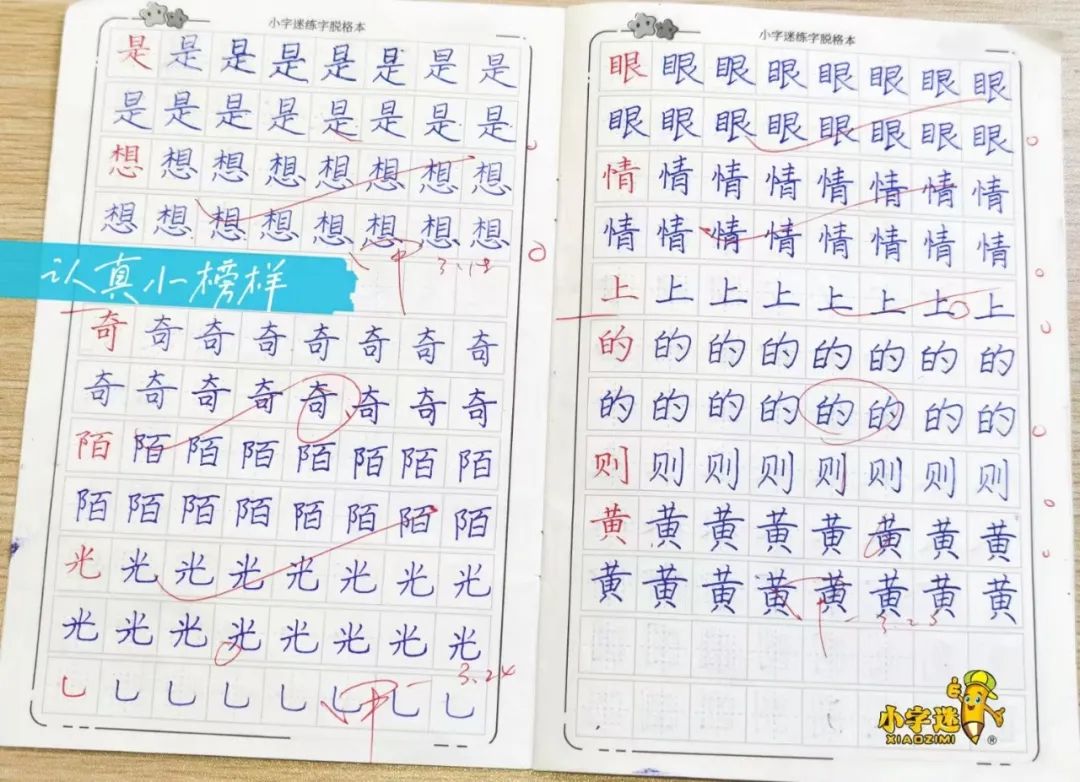 小字迷练字脱格本
是是是是是是是是
是是是是是是是是
想想想想想想想想
想想想想想想想想
认真小榜样
奇奇奇奇奇奇奇奇
奇奇奇奇奇奇奇奇
陌陌陌陌陌陌陌陌
陌陌陌陌陌陌陌陌
光光光光光光光光
光光光光光光光光
3.24
乚乚乚乚乚乚乚乚
小字迷练字脱格本
眼眼眼眼眼眼眼眼
眼眼眼眼眼眼眼眼
情情情情情情情情
情情情情情情情情
上上上上上上上上
的的的的的的的的
的的的的的的的的
则则则则则则则则
黄黄黄黄黄黄黄黄
黄黄黄黄黄黄黄黄
小字迷
XIAOZIMI®